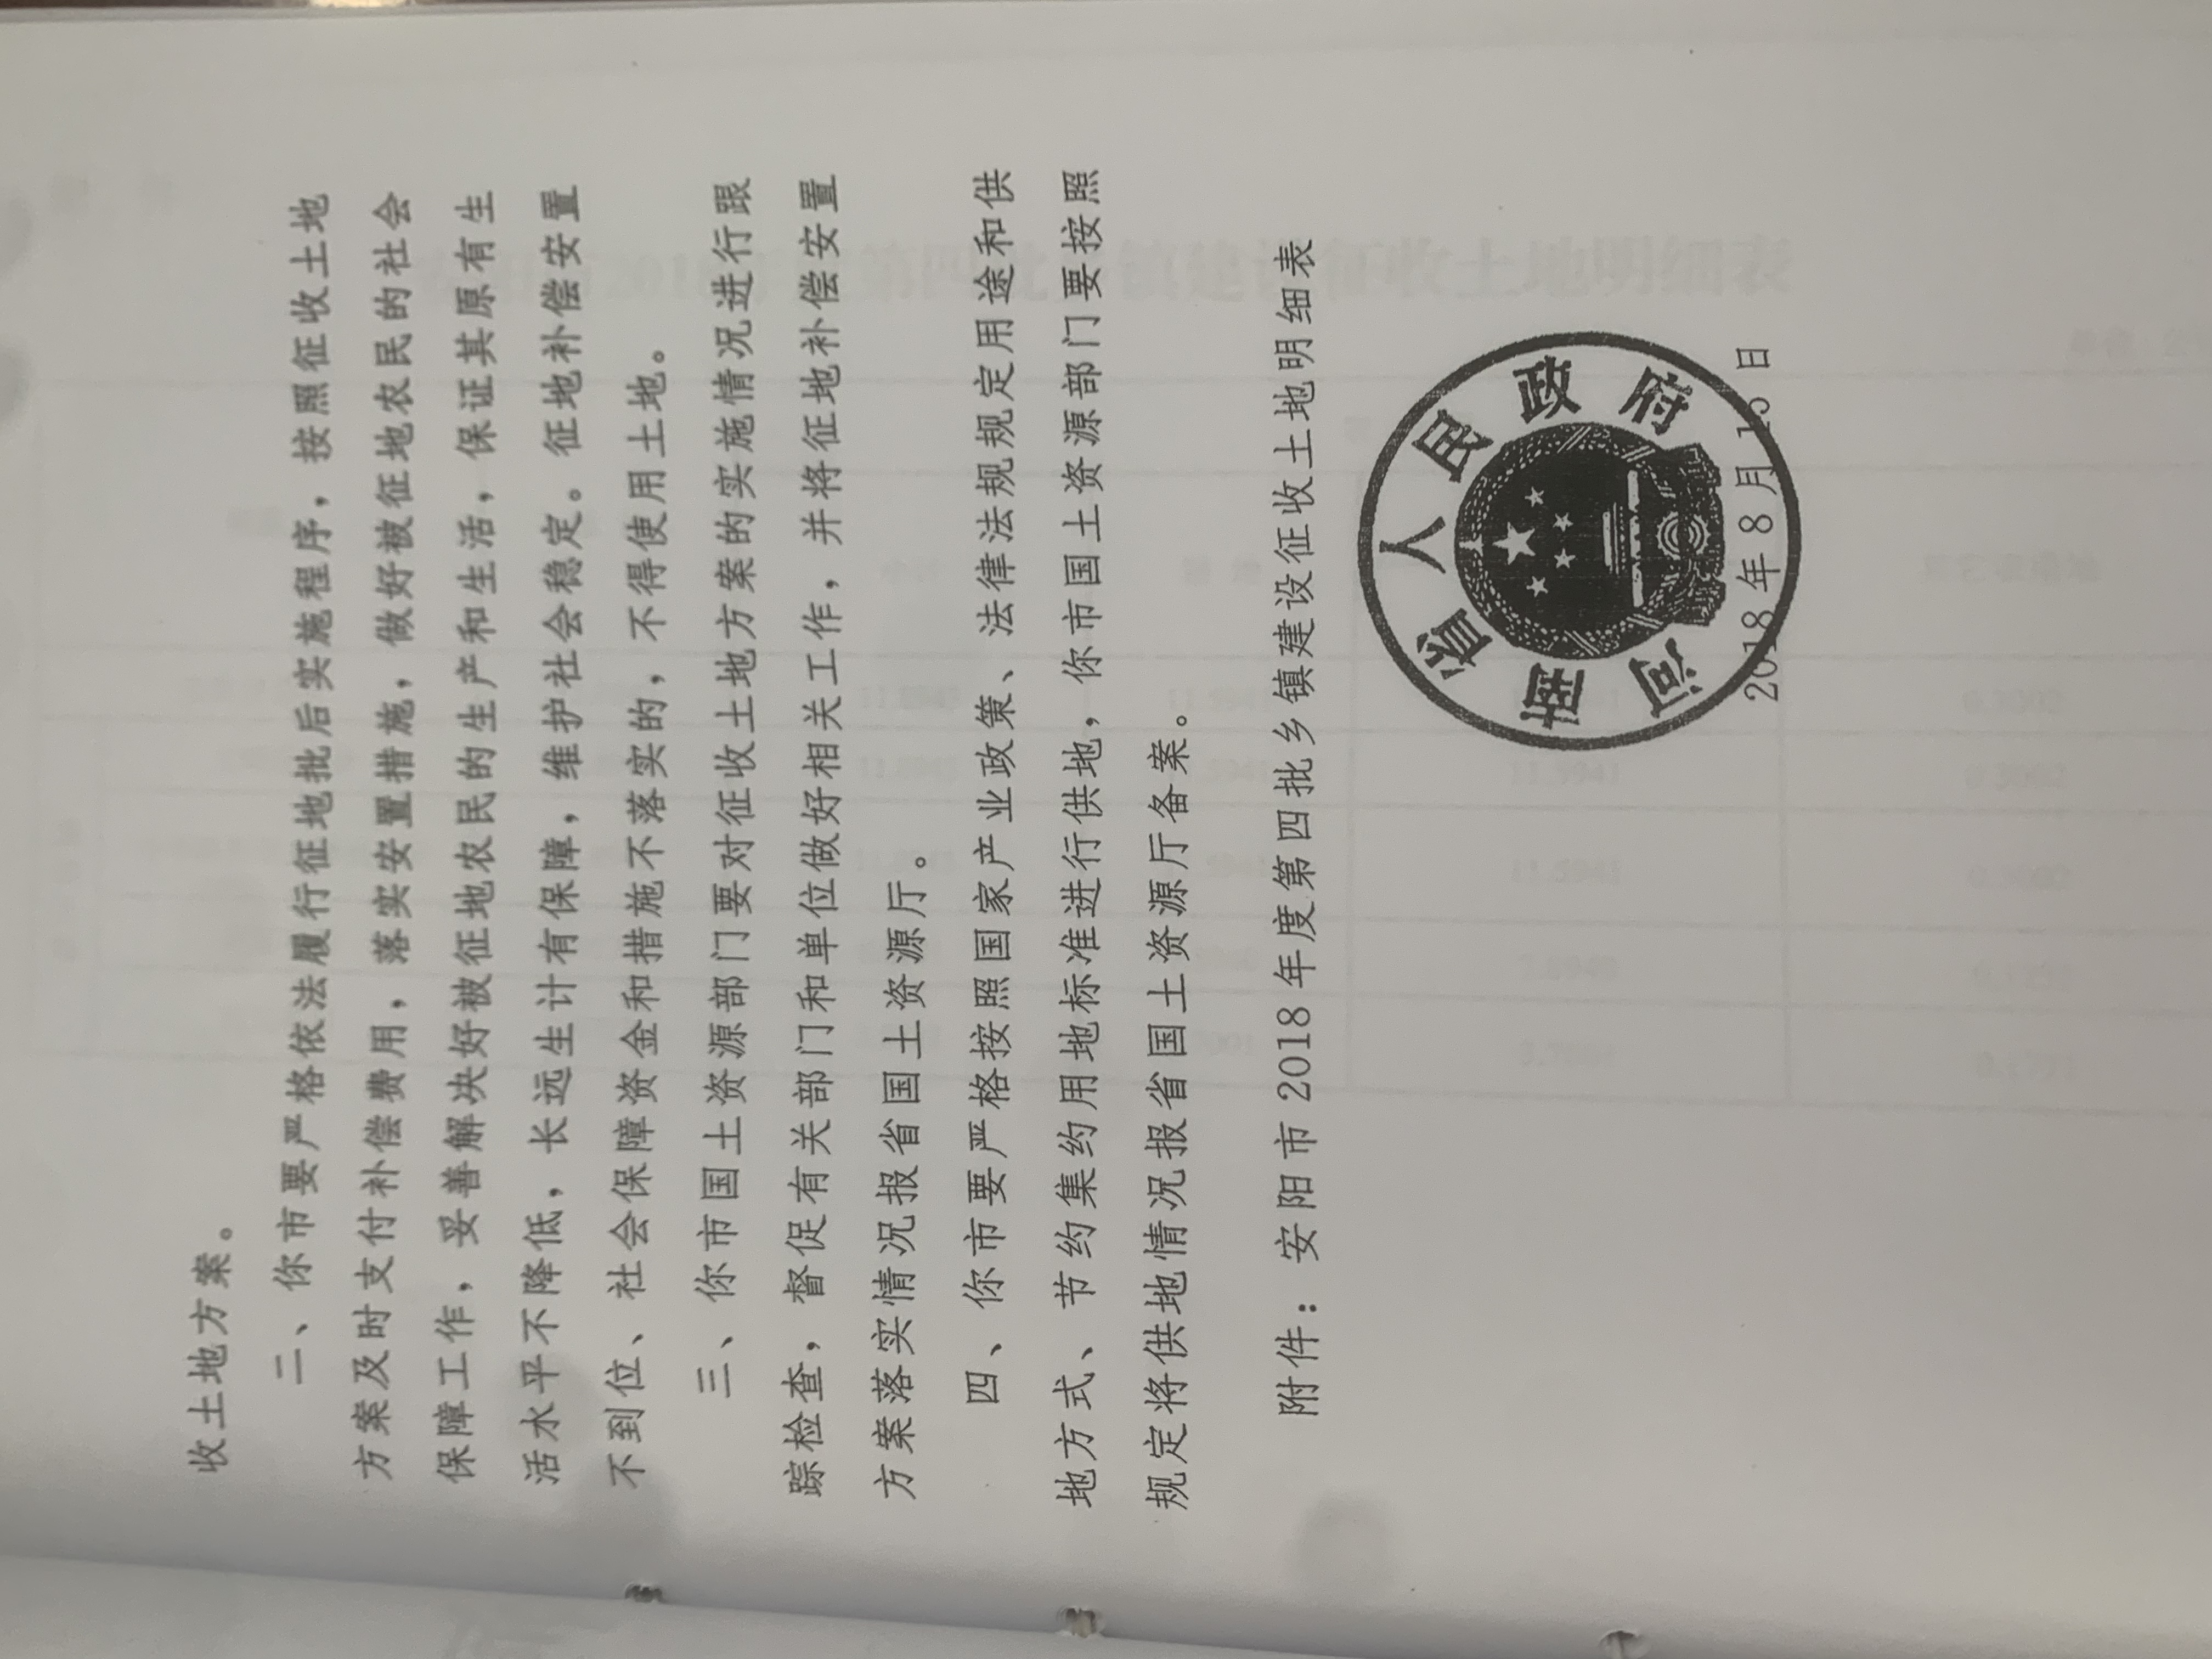 收土地方案。
二、你市要严格依法履行征地批后实施程序，按照征收土地
方案及时支付补偿费用，落实安置措施，做好被征地农民的社会
保障工作，妥善解决好被征地农民的生产和生活，保证其原有生
活水平不降低，长远生计有保障，维护社会稳定。征地补偿安置
不到位、社会保障资金和措施不落实的，不得使用土地。
三、你市国土资源部门要对征收土地方案的实施情况进行跟
踪检查，督促有关部门和单位做好相关工作，并将征地补偿安置
方案落实情况报省国土资源厅。
四、你市要严格按照国家产业政策、法律法规规定用途和供
地方式、节约集约用地标准进行供地，你市国土资源部门要按照
规定将供地情况报省国土资源厅备案。
附件：安阳市2018年度第四批乡镇建设征收土地明细表
河南省人民政府
2018年8月15日